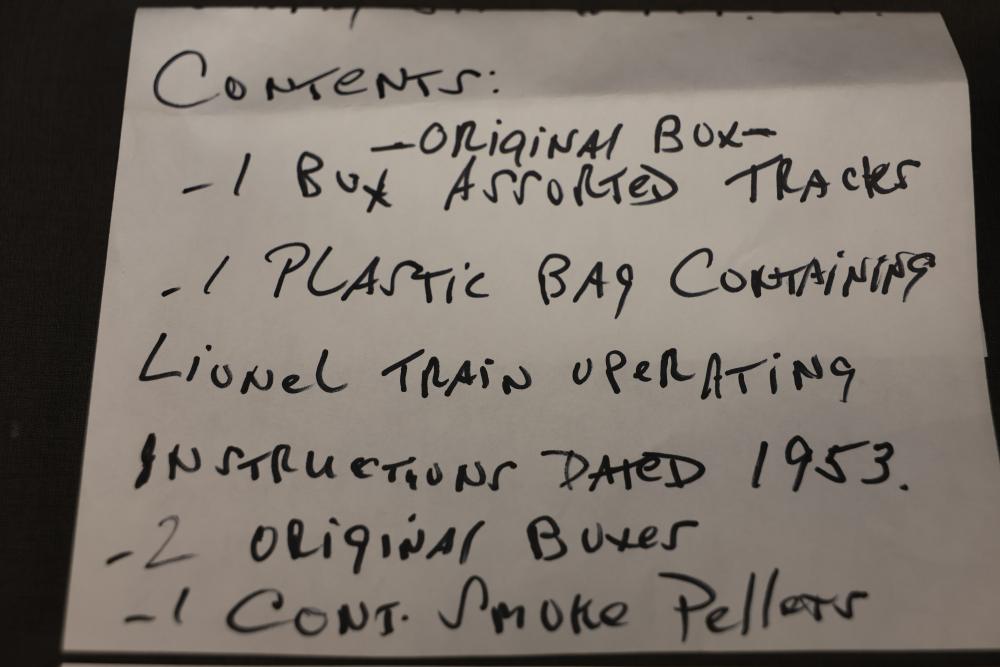 CONTENTS:
-ORIGINAL BOX-
-1 BOX ASSORTED TRACKS
-1 PLASTIC BAG CONTAINING
LIONEL TRAIN OPERATING
INSTRUCTIONS DATED 1953.
-2 ORIGINAL BOXES
-1 CONT. SMOKE PELLETS